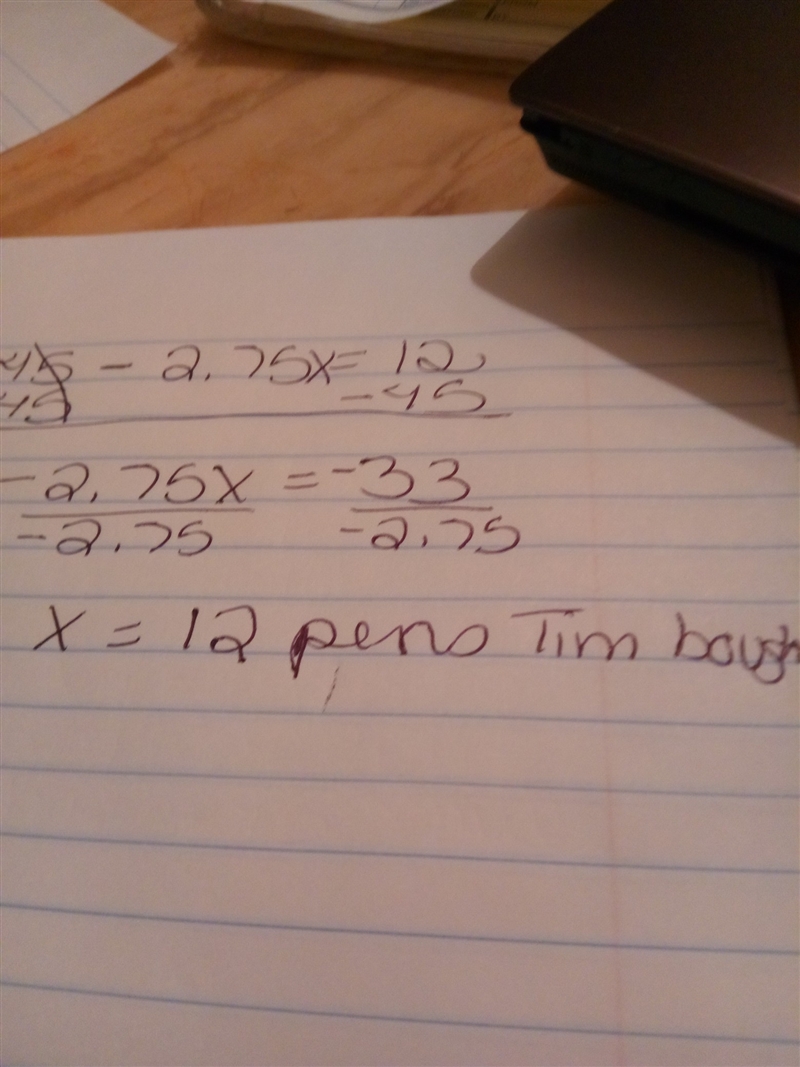 45 - 2.75x = 12
45 -45
-2.75x = -33
-2.75 -2.75
x = 12 pens Tim bough